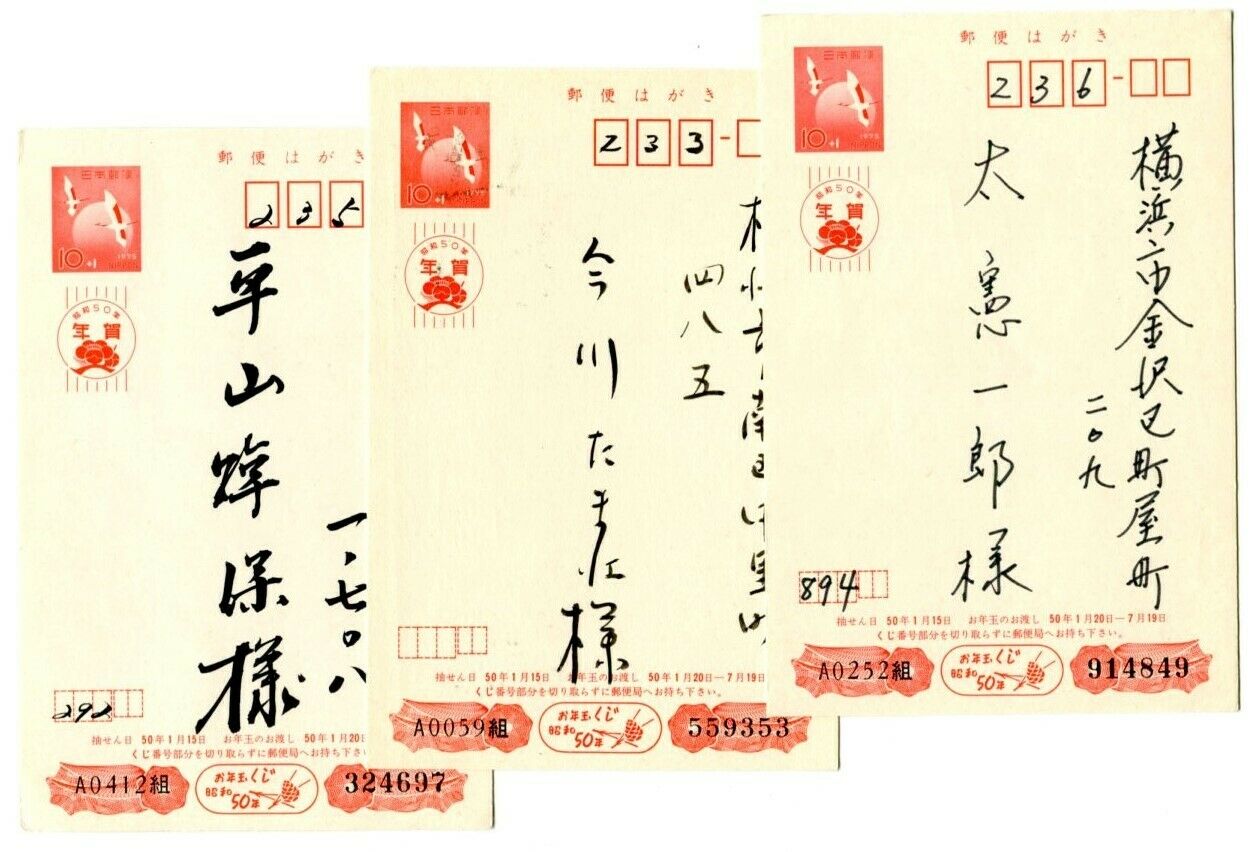 郵便はがき
日本郵便
10+1
1975
NIPPON
235
昭和50年
年賀
平山
保様
一、七〇八
292
抽せん日 50年1月15日 お年玉のお渡し 50年1月20日
くじ番号部分を切り取らずに郵便局へお持ち下さい
A0412組
お年玉くじ
昭和
50年
324697
郵便はがき
日本郵便
10+1
233
昭和50年
年賀
四八五
今川たま江様
抽せん日 50年1月15日 お年玉のお渡し 50年1月20日―7月19日
くじ番号部分を切り取らずに郵便局へお持ち下さい。
A0059組
お年玉くじ
昭和
50年
559353
郵便はがき
日本郵便
10+1
1975
NIPPON
236-
昭和50年
年賀
横浜市金沢区町屋町
二〇九
太憲一郎様
894
抽せん日 50年1月15日 お年玉のお渡し 50年1月20日―7月19日
くじ番号部分を切り取らずに郵便局へお持ち下さい。
A0252組
お年玉くじ
昭和
50年
914849